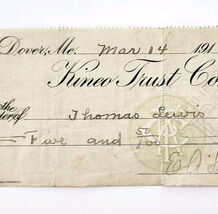 Dover, Me. Mar 14 191
Kineo Trust Co
the
der of Thomas Lewis
Five and 50/100